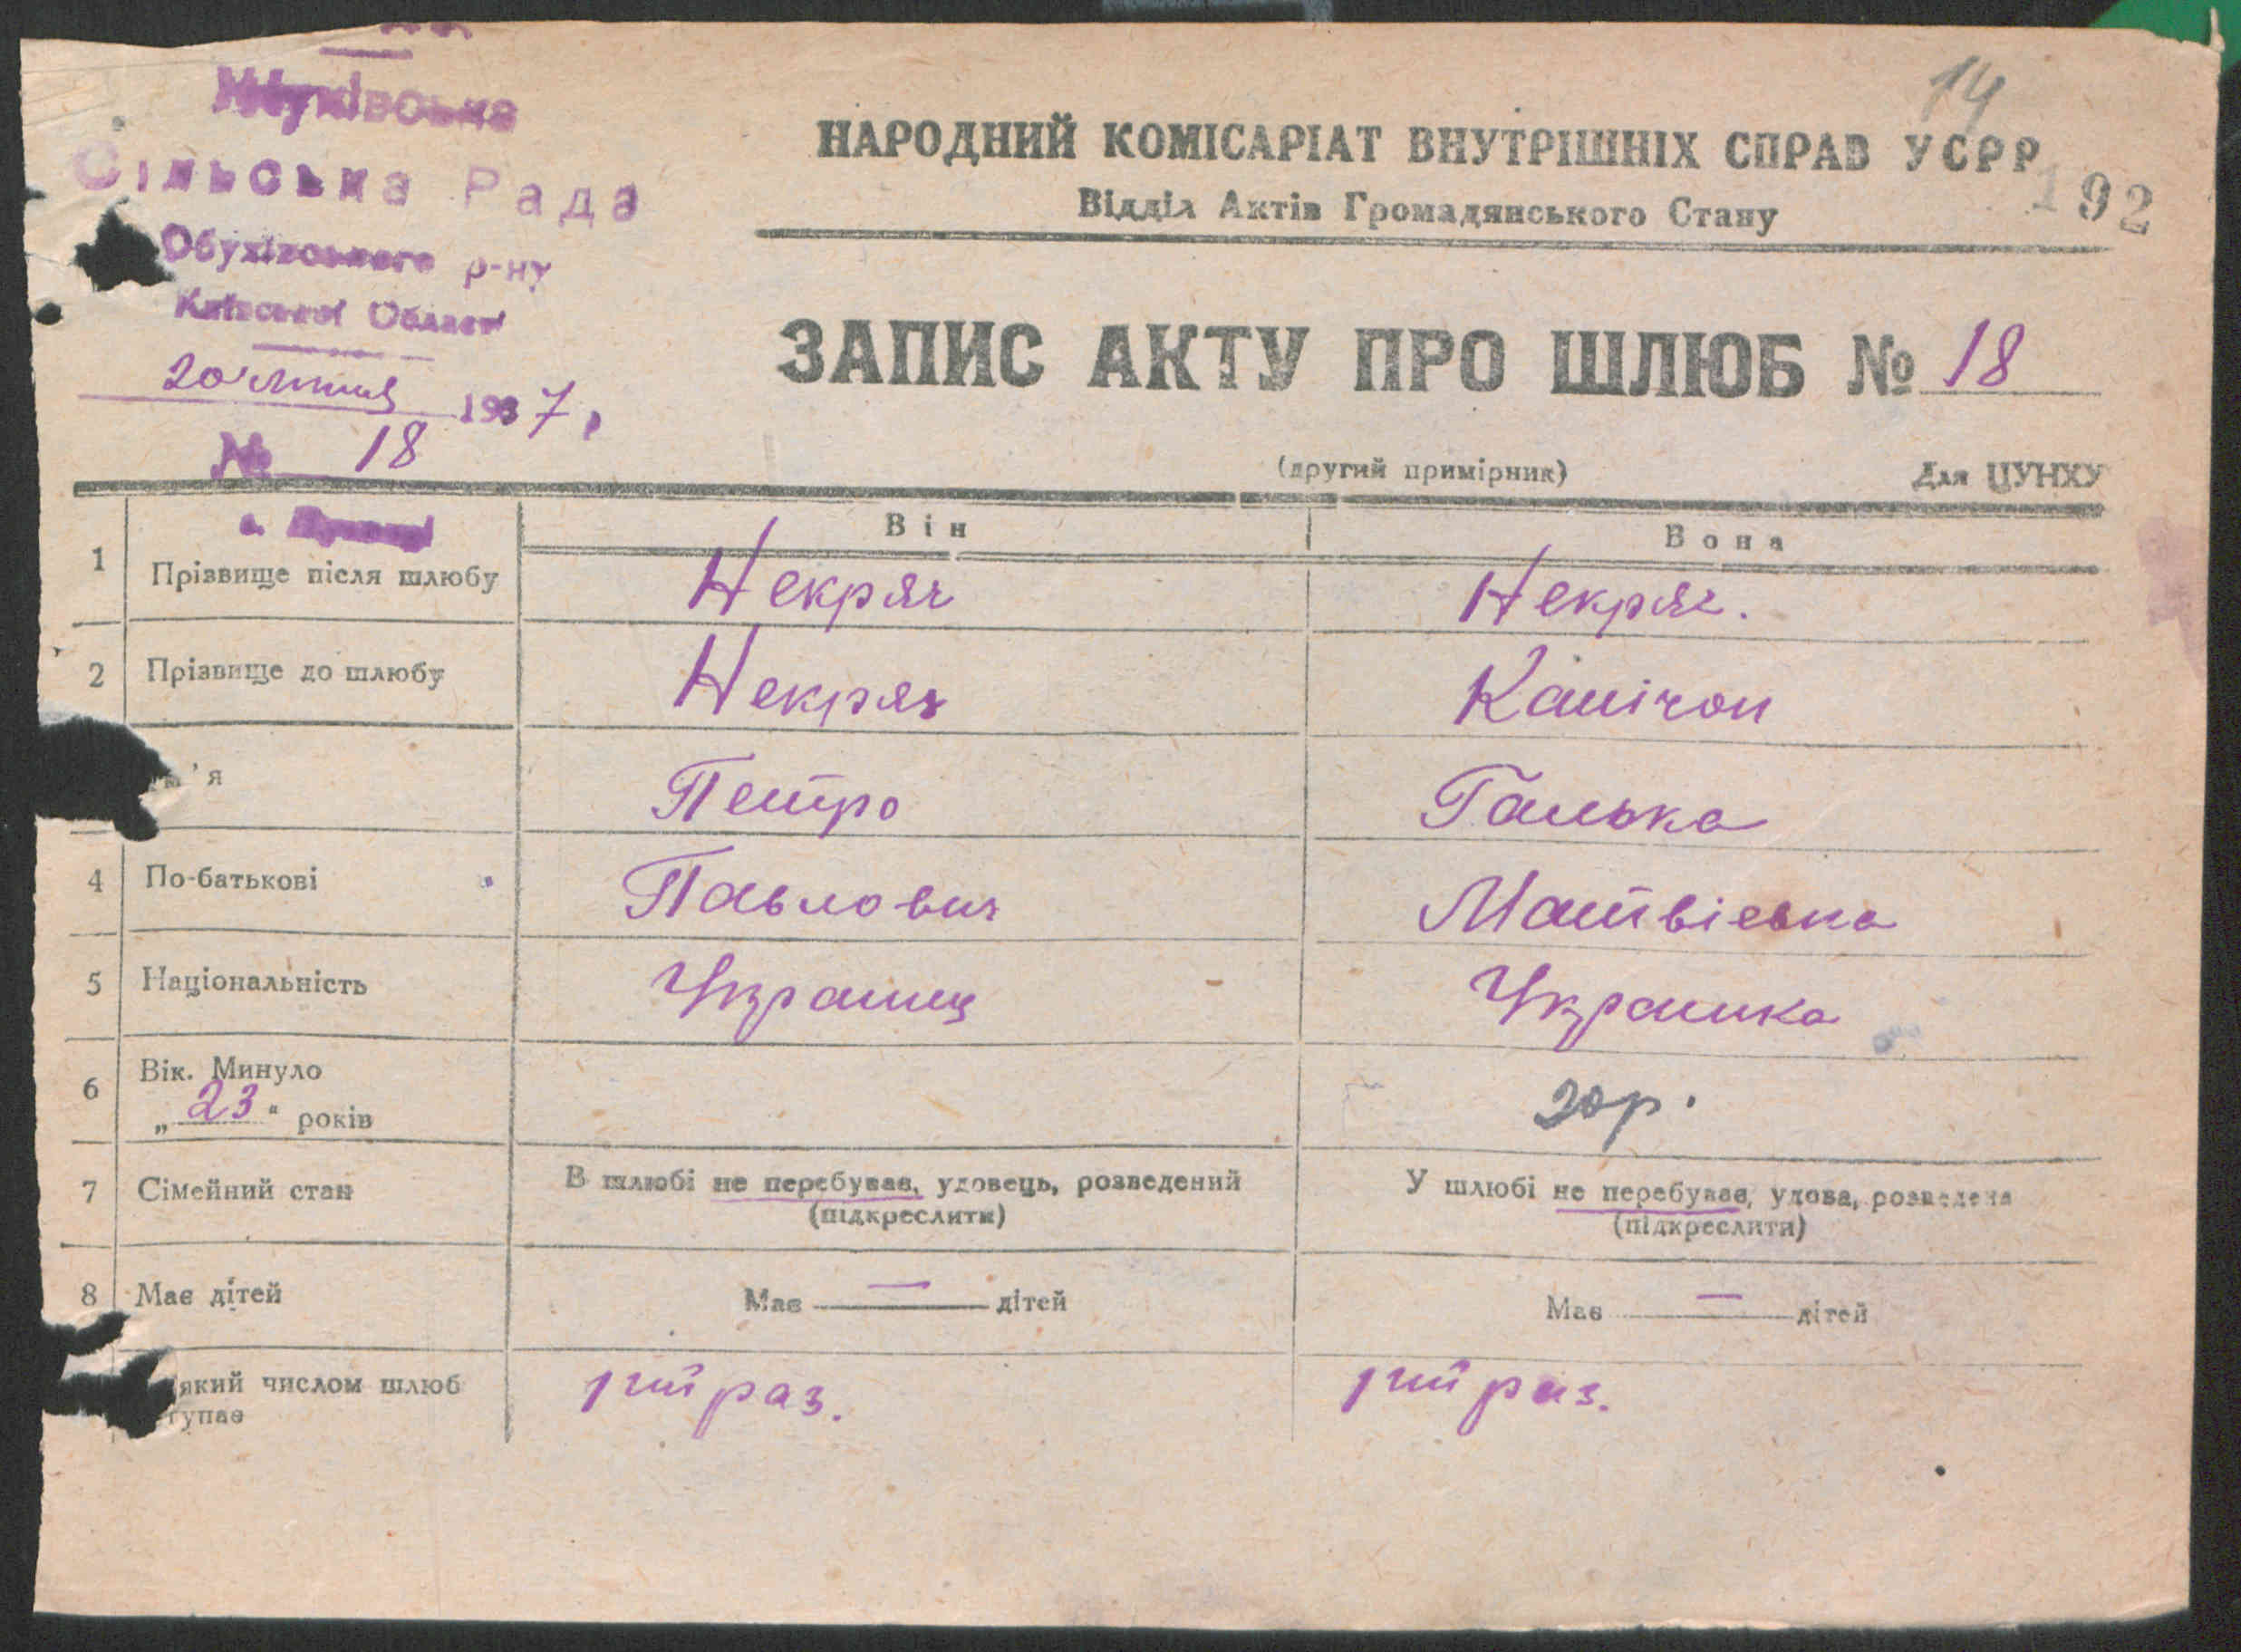 Сільська Рада
Обухівського р-ну
Київської Області
20 липня 1937 р
№ 18
14
НАРОДНИЙ КОМІСАРІАТ ВНУТРІШНІХ СПРАВ УСРР
192
Відділ Актів Громадянського Стану
ЗАПИС АКТУ ПРО ШЛЮБ № 18
(другий примірник) Для ЦУНХУ
Він Вона
1 Прізвище після шлюбу Некряч Некряч.
2 Прізвище до шлюбу Некряч
м'я Петро Галька
4 По-батькові Павлович Матвієвна
5 Національність Українц Українка
6 Вік. Минуло „23" років 20 р.
7 Сімейний стан В шлюбі не перебуває, удовець, розведений У шлюбі не перебуває, удова, розведена
(підкреслити) (підкреслити)
8 Має дітей Має — дітей Має — дітей
який числом шлюб 1ший раз. 1ший раз.
тупає